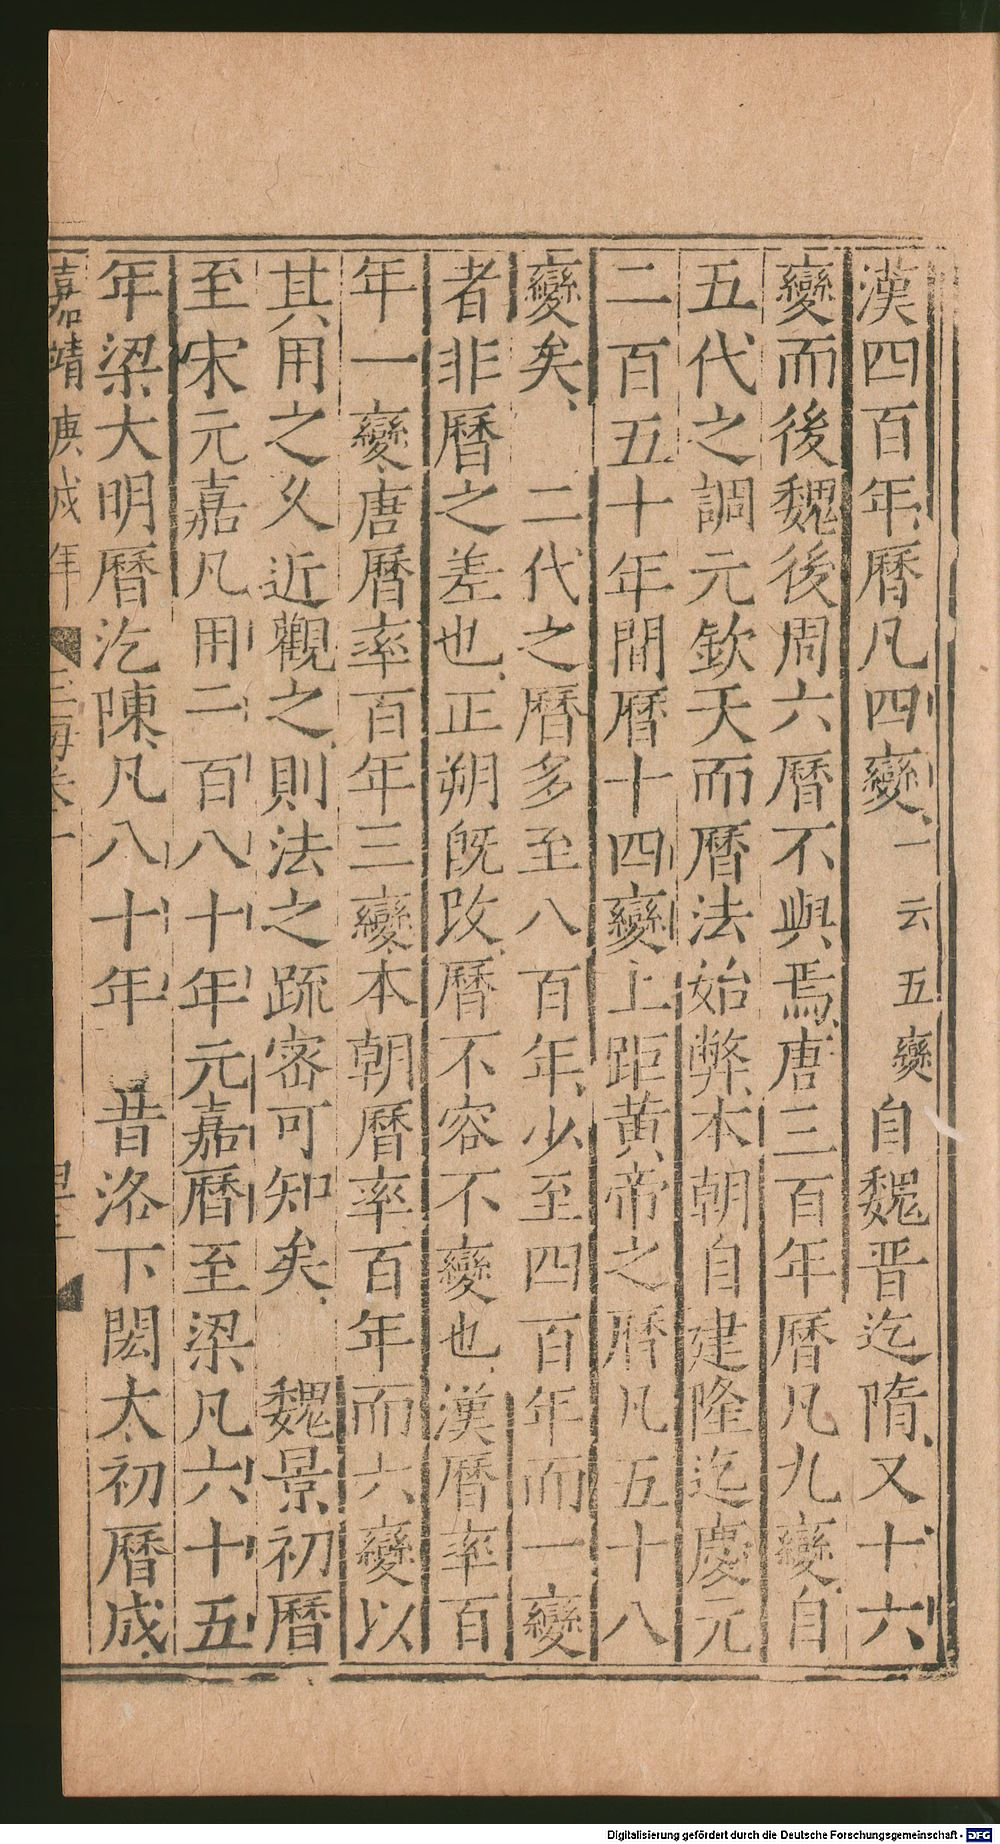 漢四百年曆凡四變一云五變自魏晋迄隋又十六
變而後魏後周六曆不與焉唐三百年曆凡九變自
五代之調元欽天而曆法始弊本朝自建隆迄慶元
二百五十年間曆十四變上距黄帝之曆凡五十八
變矣 二代之曆多至八百年少至四百年而一變
者非曆之差也正朔旣改曆不容不變也漢曆率百
年一變唐曆率百年三變本朝曆率百年而六變以
其用之乆近觀之則法之疏宻可知矣 魏景初曆
至宋元嘉凡用二百八十年元嘉曆至梁凡六十五
年梁大明曆汔陳凡八十年 昔洛下閎太初曆成
嘉靖庚戌年
Digitalisierung gefördert durch die Deutsche Forschungsgemeinschaft - DFG